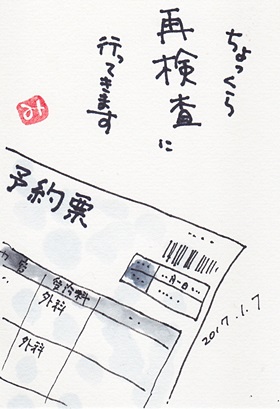 ちょっくら
再検査に
行ってきます
な
予約票
A-B
内科
外科
外科
2017.1.7